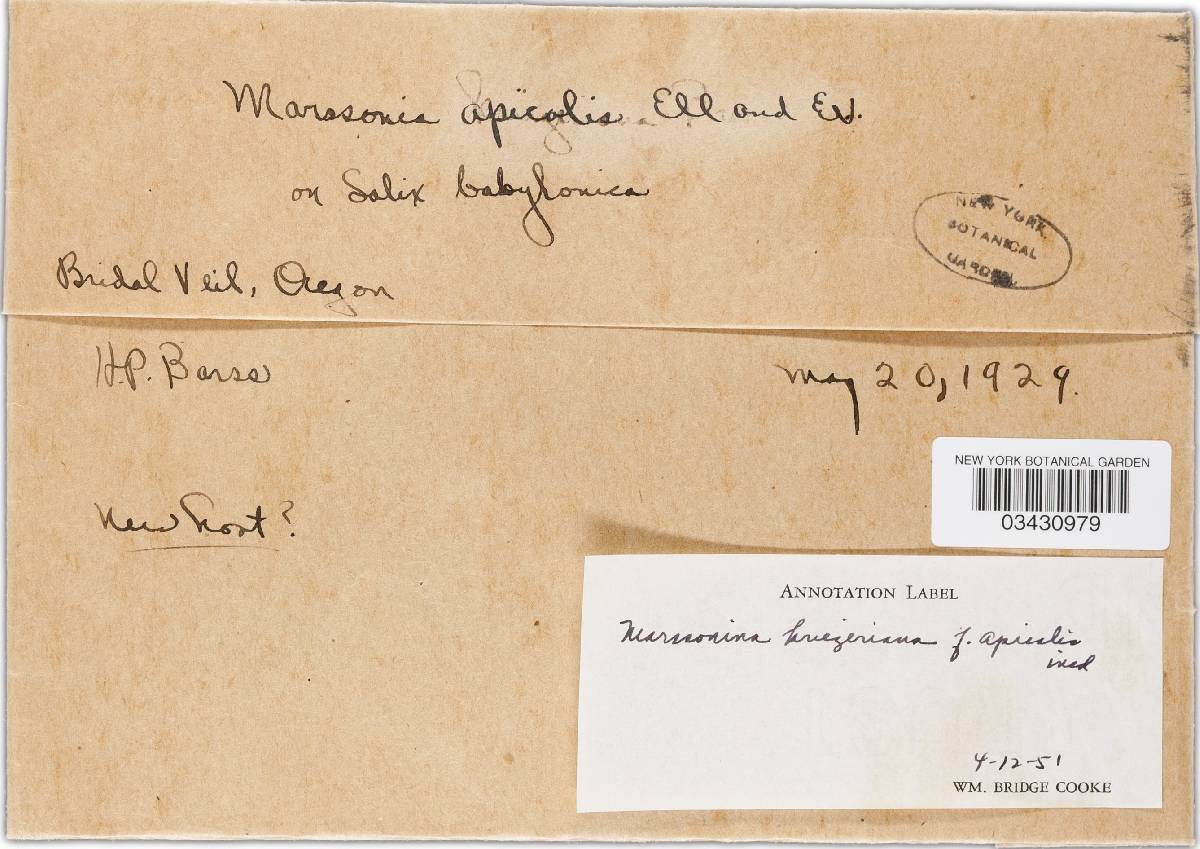 Marssonia apicalis Ell and Ev.
on Salix babylonica
NEW YORK
BOTANICAL
GARDEN
Bridal Veil, Oregon
H.P. Barss
May 20, 1929.
NEW YORK BOTANICAL GARDEN
03430979
New host?
ANNOTATION LABEL
Marssonina kriegeriana f. apicalis
ined
4-12-51
WM. BRIDGE COOKE